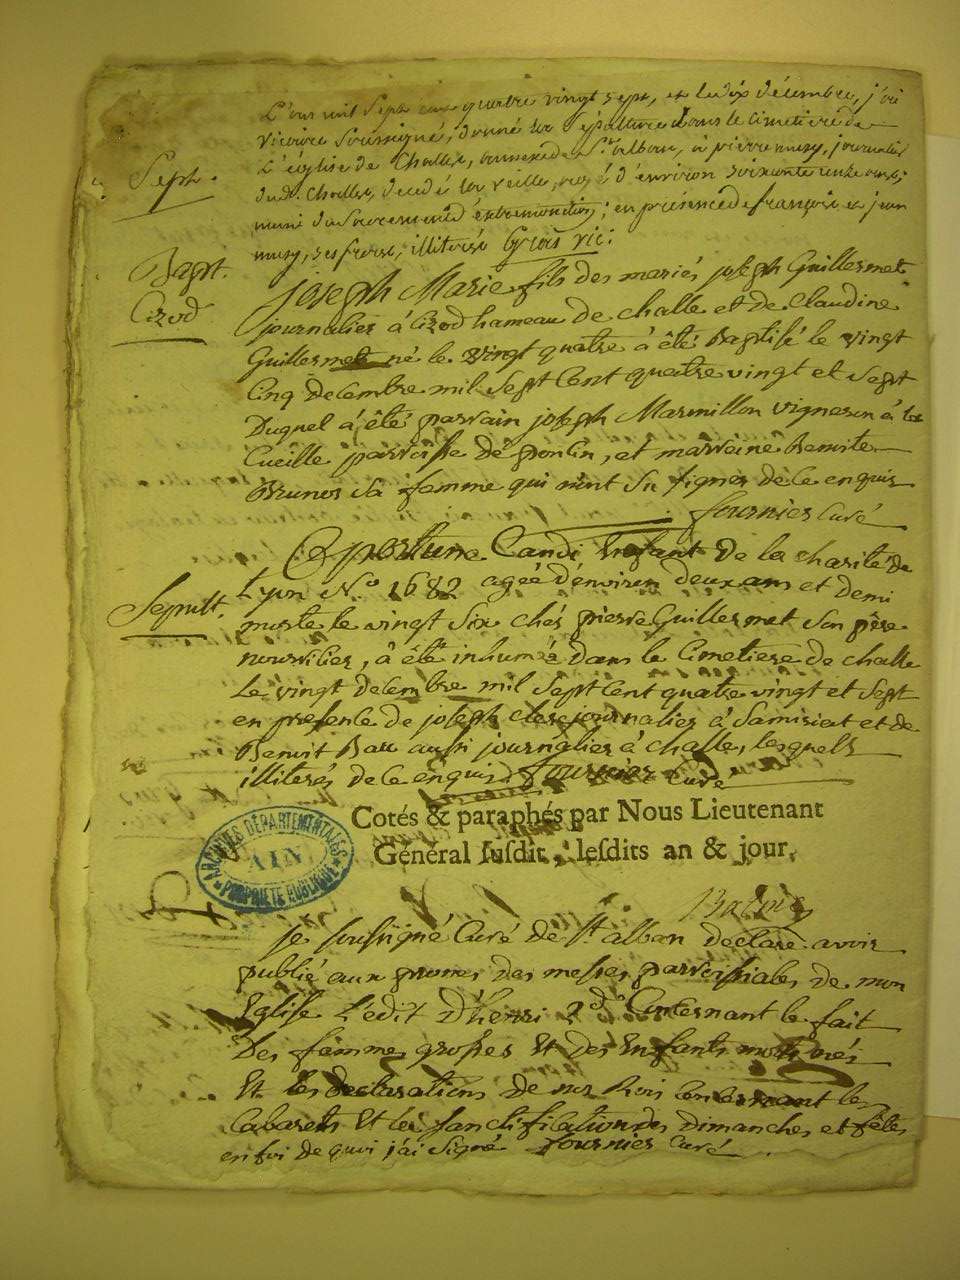 L'an mil sept cent quatre vingt sept, et le dix décembre, j'ai
vicaire soussigné, donné la sépulture dans le cimetière de
Seph.
L'église de Challes, annexe de St. alban, à pierre mury, journalier
dud. Challes, decedé la veille, agé d'environ soixante ans,
muni du sacrement d'extremonction; en présence de françois et jean
mury, ses freres, illiterés Gros vic:
Bapt.
Cizod
joseph Marie fils des mariés joseph Guillermet
journalier à Cizod hameau de challe et de Claudine
Guillermet né le vingt quatre à été Baptisé le vingt
Cinq decembre mil sept Cent quatre vingt et sept
Duquel à été parrain joseph Marmillon vigneron à la
Cueille parroisse de poncin, et marreine Benoite
Brunet sa femme qui n'ont su signer de ce enquis
fournier Curé
Sepult.
Oportune Candi Enfant de la charité de
Lyon N.o 1682 ageé d'environ deux ans et demi
morte le vingt six chés pierre Guillermet son père
nourricier, à été inhumée dans le Cimetiere de challe
Le vingt decembre mil sept Cent quatre vingt et sept
en presence de joseph clerc journalier à Samisiat et de
Benoit Bau aussi journalier à challe, lesquels
illiterés de ce enquis fournier Curé
Cotés & paraphés par Nous Lieutenant
Général ſuſdit, leſdits an & jour.
ARCHIVES DÉPARTEMENTALES
AIN
PROPRIÉTÉ PUBLIQUE
je soussigné Curé de St. alban declare avoir
publié aux prones des messes parroissiales de mon
Eglise L'edit d'henri 2d Concernant le fait
Des femmes grosses Et des Enfants morts nés
Et les declarations de nos Rois concernant les
Cabarets Et la sanctification des dimanches et fêtes
en foi de quoi j'ai signé fournier Curé